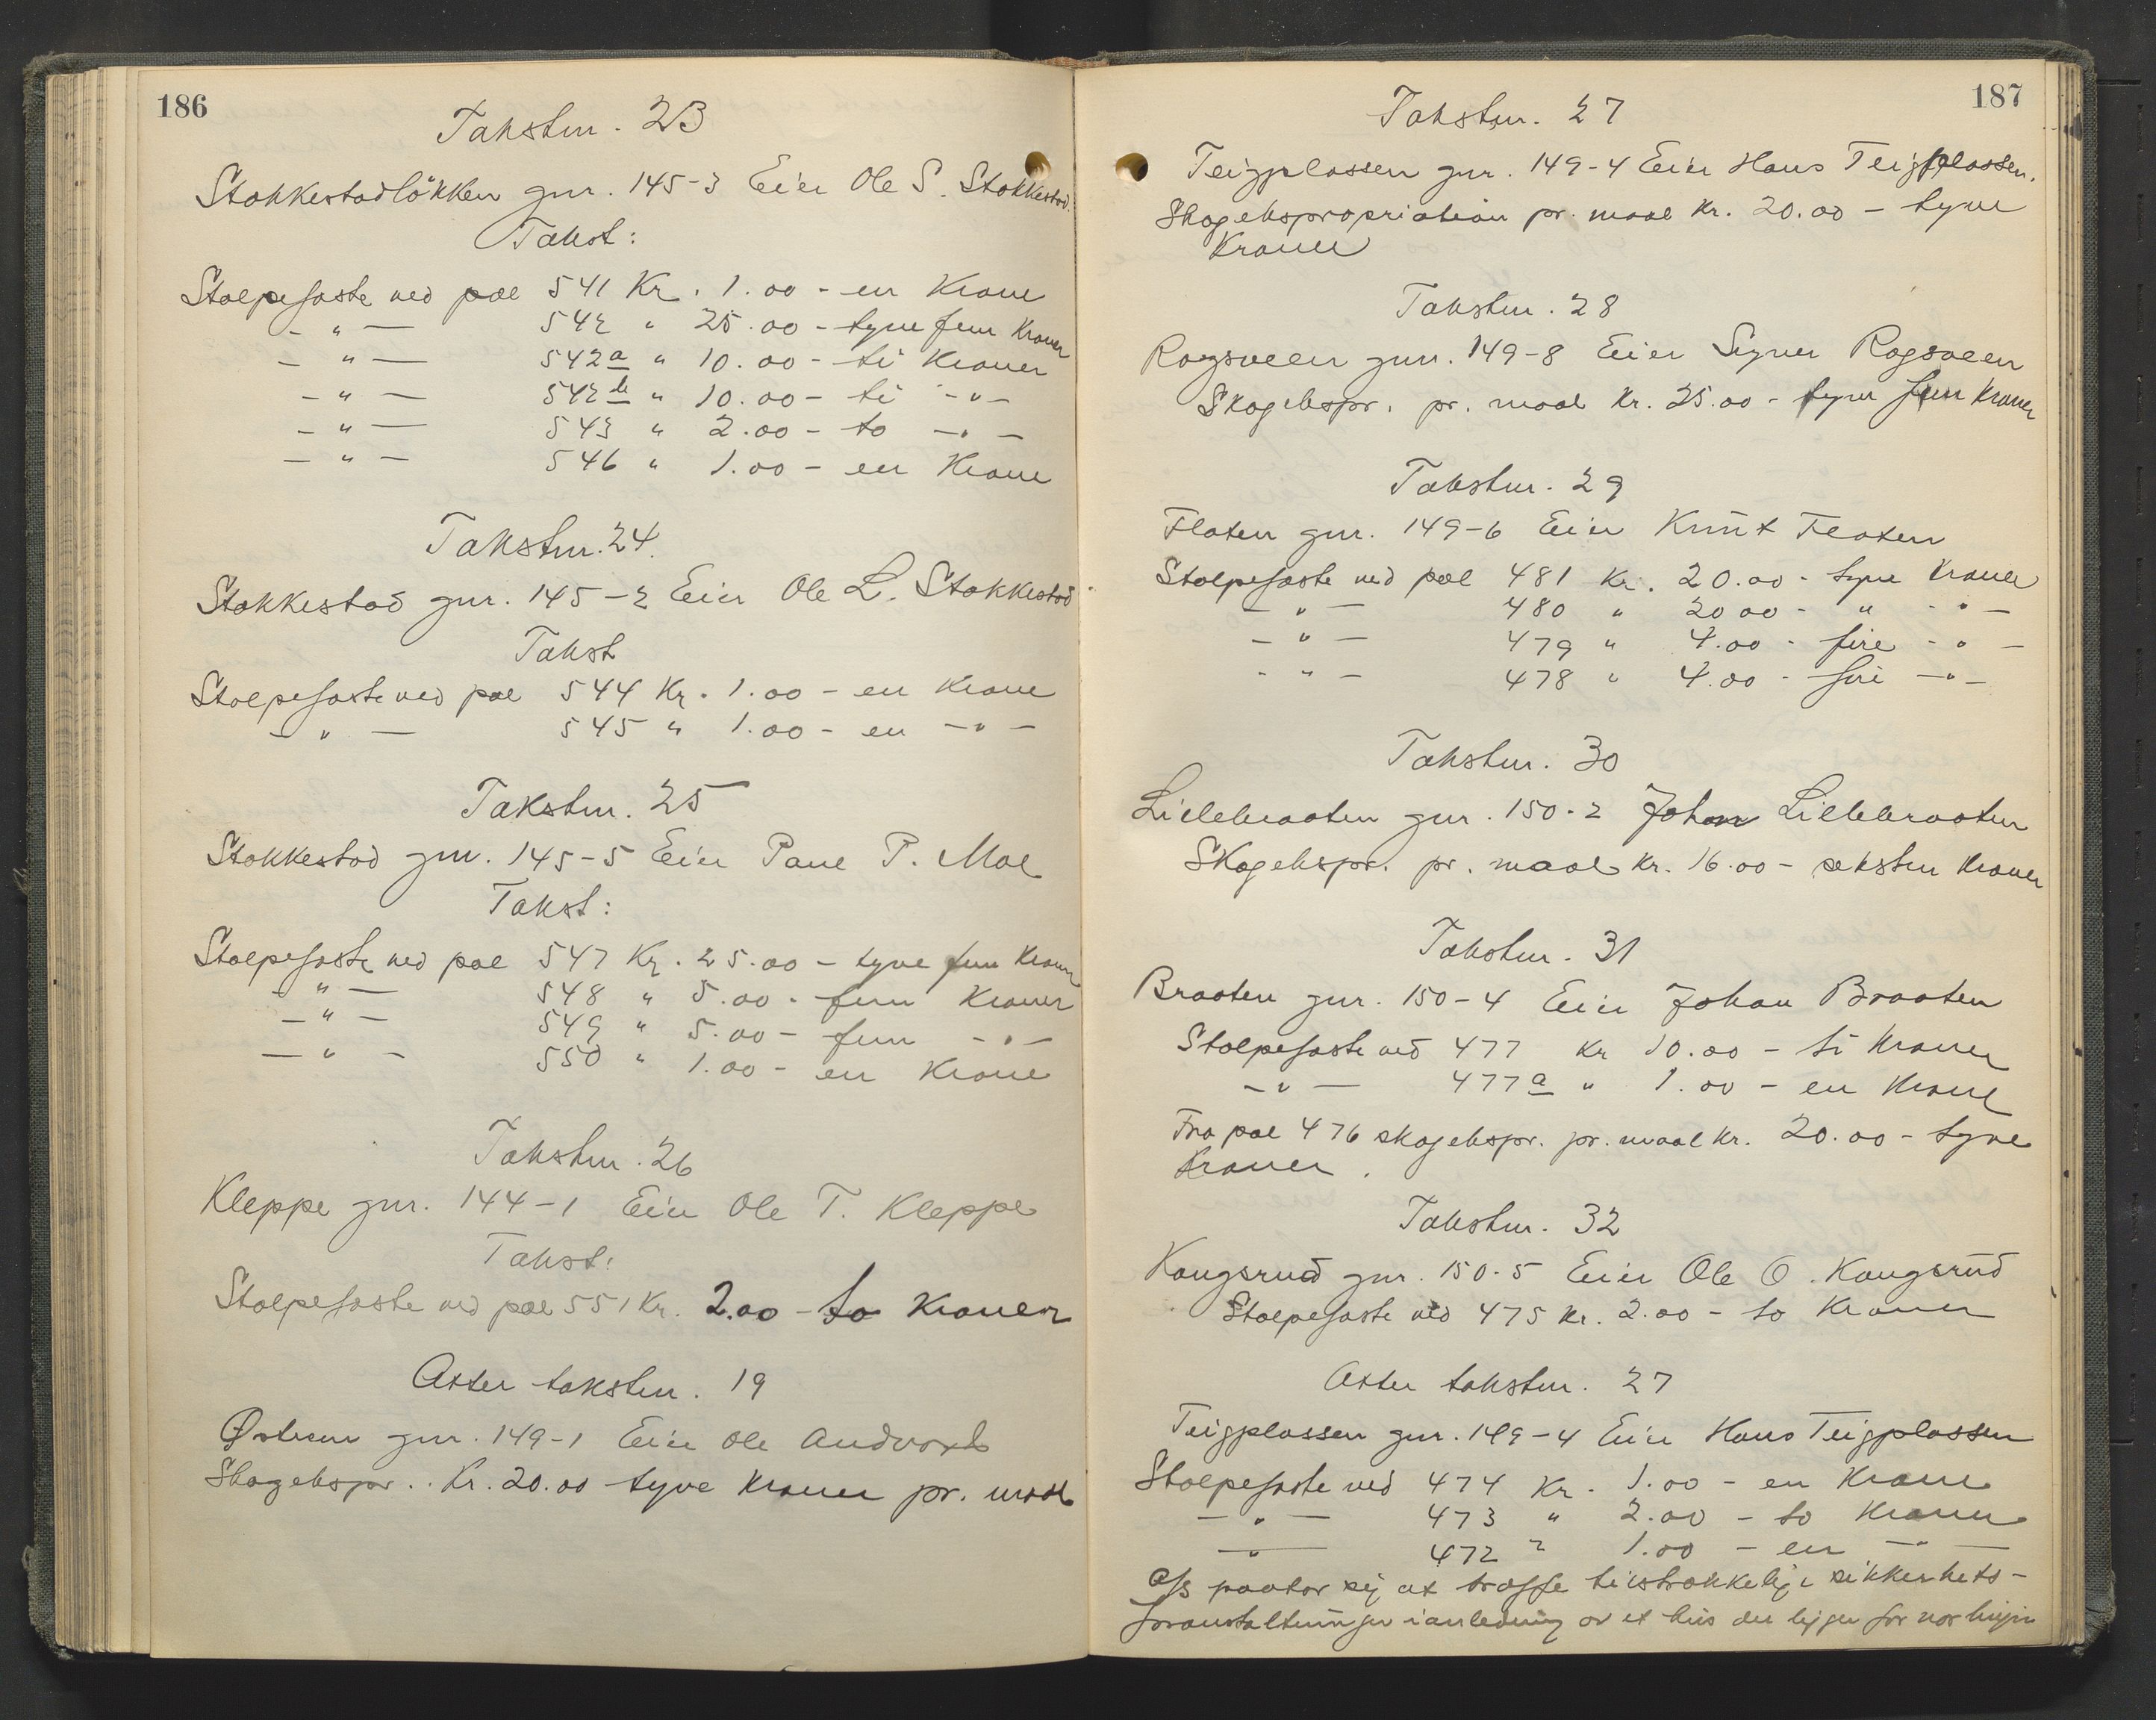 186
Takstnr. 23
Stokkestadløkken gnr. 145-3 Eier Ole S. Stokkestad.
Takst:
Stolpefæste ved pæl 541 Kr. 1.00 - en Krone
- " - 542 " 25.00 - tyve fem Kroner
- " - 542a " 10.00 - ti Kroner
- " - 542b " 10.00 - ti - " -
- " - 543 " 2.00 - to - " -
- " - 546 " 1.00 - en Krone
Takstnr. 24.
Stokkestad gnr. 145-2 Eier Ole L. Stokkestad
Takst
Stolpefæste ved pæl 544 Kr. 1.00 - en Krone
- " - 545 " 1.00 - en - " -
Takstnr. 25
Stokkestad gnr. 145-5 Eier Paul P. Moe
Takst:
Stolpefæste ved pæl 547 Kr. 25.00 - tyve fem Kroner
- " - 548 " 5.00 - fem Kroner
- " - 549 " 5.00 - fem - " -
- " - 550 " 1.00 - en Krone
Takstnr. 26
Kleppe gnr. 144-1 Eier Ole T. Kleppe
Takst:
Stolpefæste ved pæl 551 Kr. 2.00 - to Kroner
Atter takstnr. 19
gnr. 149-1 Eier Ole Andvord
Skogekspr.. Kr. 20.00 tyve Kroner pr. maal
187
Takstnr. 27
Teigplassen gnr. 149-4 Eier Hans Teigplassen.
Skogekspropriation pr. maal Kr. 20.00 - tyve
Kroner
Takstnr. 28
Rogsveen gnr. 149-8 Eier Syver Rogsveen
Skogekspr. pr. maal Kr. 25.00 - tyve fem Kroner
Takstnr. 29
Flaten gnr. 149-6 Eier Knut Flaten
Stolpefæste ved pæl 481 Kr. 20.00 - tyve Kroner
- " - 480 " 20 00 - " - " -
- " - 479 " 4.00 - fire - " -
- " - 478 " 4.00 - fire - " -
Takstnr. 30
Lillebraaten gnr. 150-2 Johan Lillebraaten
Skogekspr. pr. maal Kr. 16.00 - seksten Kroner
Takstnr. 31
Braaten gnr. 150-4 Eier Johan Braaten
Stolpefæste ved 477 Kr 10.00 - ti Kroner
- " - 477a " 1.00 - en Krone
Fra pæl 476 skogekspr. pr. maal Kr. 20.00 - tyve
Kroner.
Takstnr. 32
Kongsrud gnr. 150-5 Eier Ole O. Kongsrud
Stolpefæste ved 475 Kr. 2.00 - to Kroner
Atter takstnr. 27
Teigplassen gnr. 149-4 Eier Hans Teigplassen
Stolpefæste ved 474 Kr. 1.00 - en Krone
- " - 473 " 2.00 - to Kroner
- " - 472 " 1.00 - en - " -
A/S paatar sig at træffe tilstrækkelige sikkerhets-
foranstaltninger i anledning av et hus der ligger for nær linjen